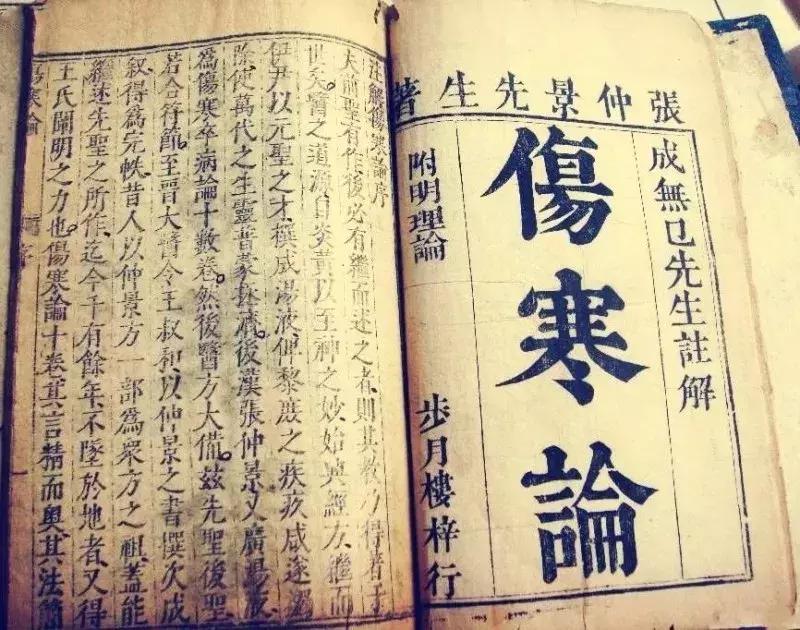 張仲景先生著
成無已先生註解
傷寒論
附明理論
步月樓梓行
注解傷寒論序
夫前聖有作後必有繼而述之者則其教乃得著于
世矣醫之道源自炎黃以至神之妙始興經方繼而
伊尹以元聖之才撰成湯液俾黎庶之疾疢咸遂蠲
除使萬代之生靈普蒙拯濟後漢張仲景又廣湯液
為傷寒卒病論十數卷然後醫方大備茲先聖後聖
若合符節至晉大醫令王叔和以仲景之書撰次成
叙得為完帙昔人以仲景方一部為眾方之祖蓋能
繼述先聖之所作迄今千有餘年不墜於地者又得
王氏闡明之力也傷寒論十卷其言精而奧其法簡
傷寒論
序